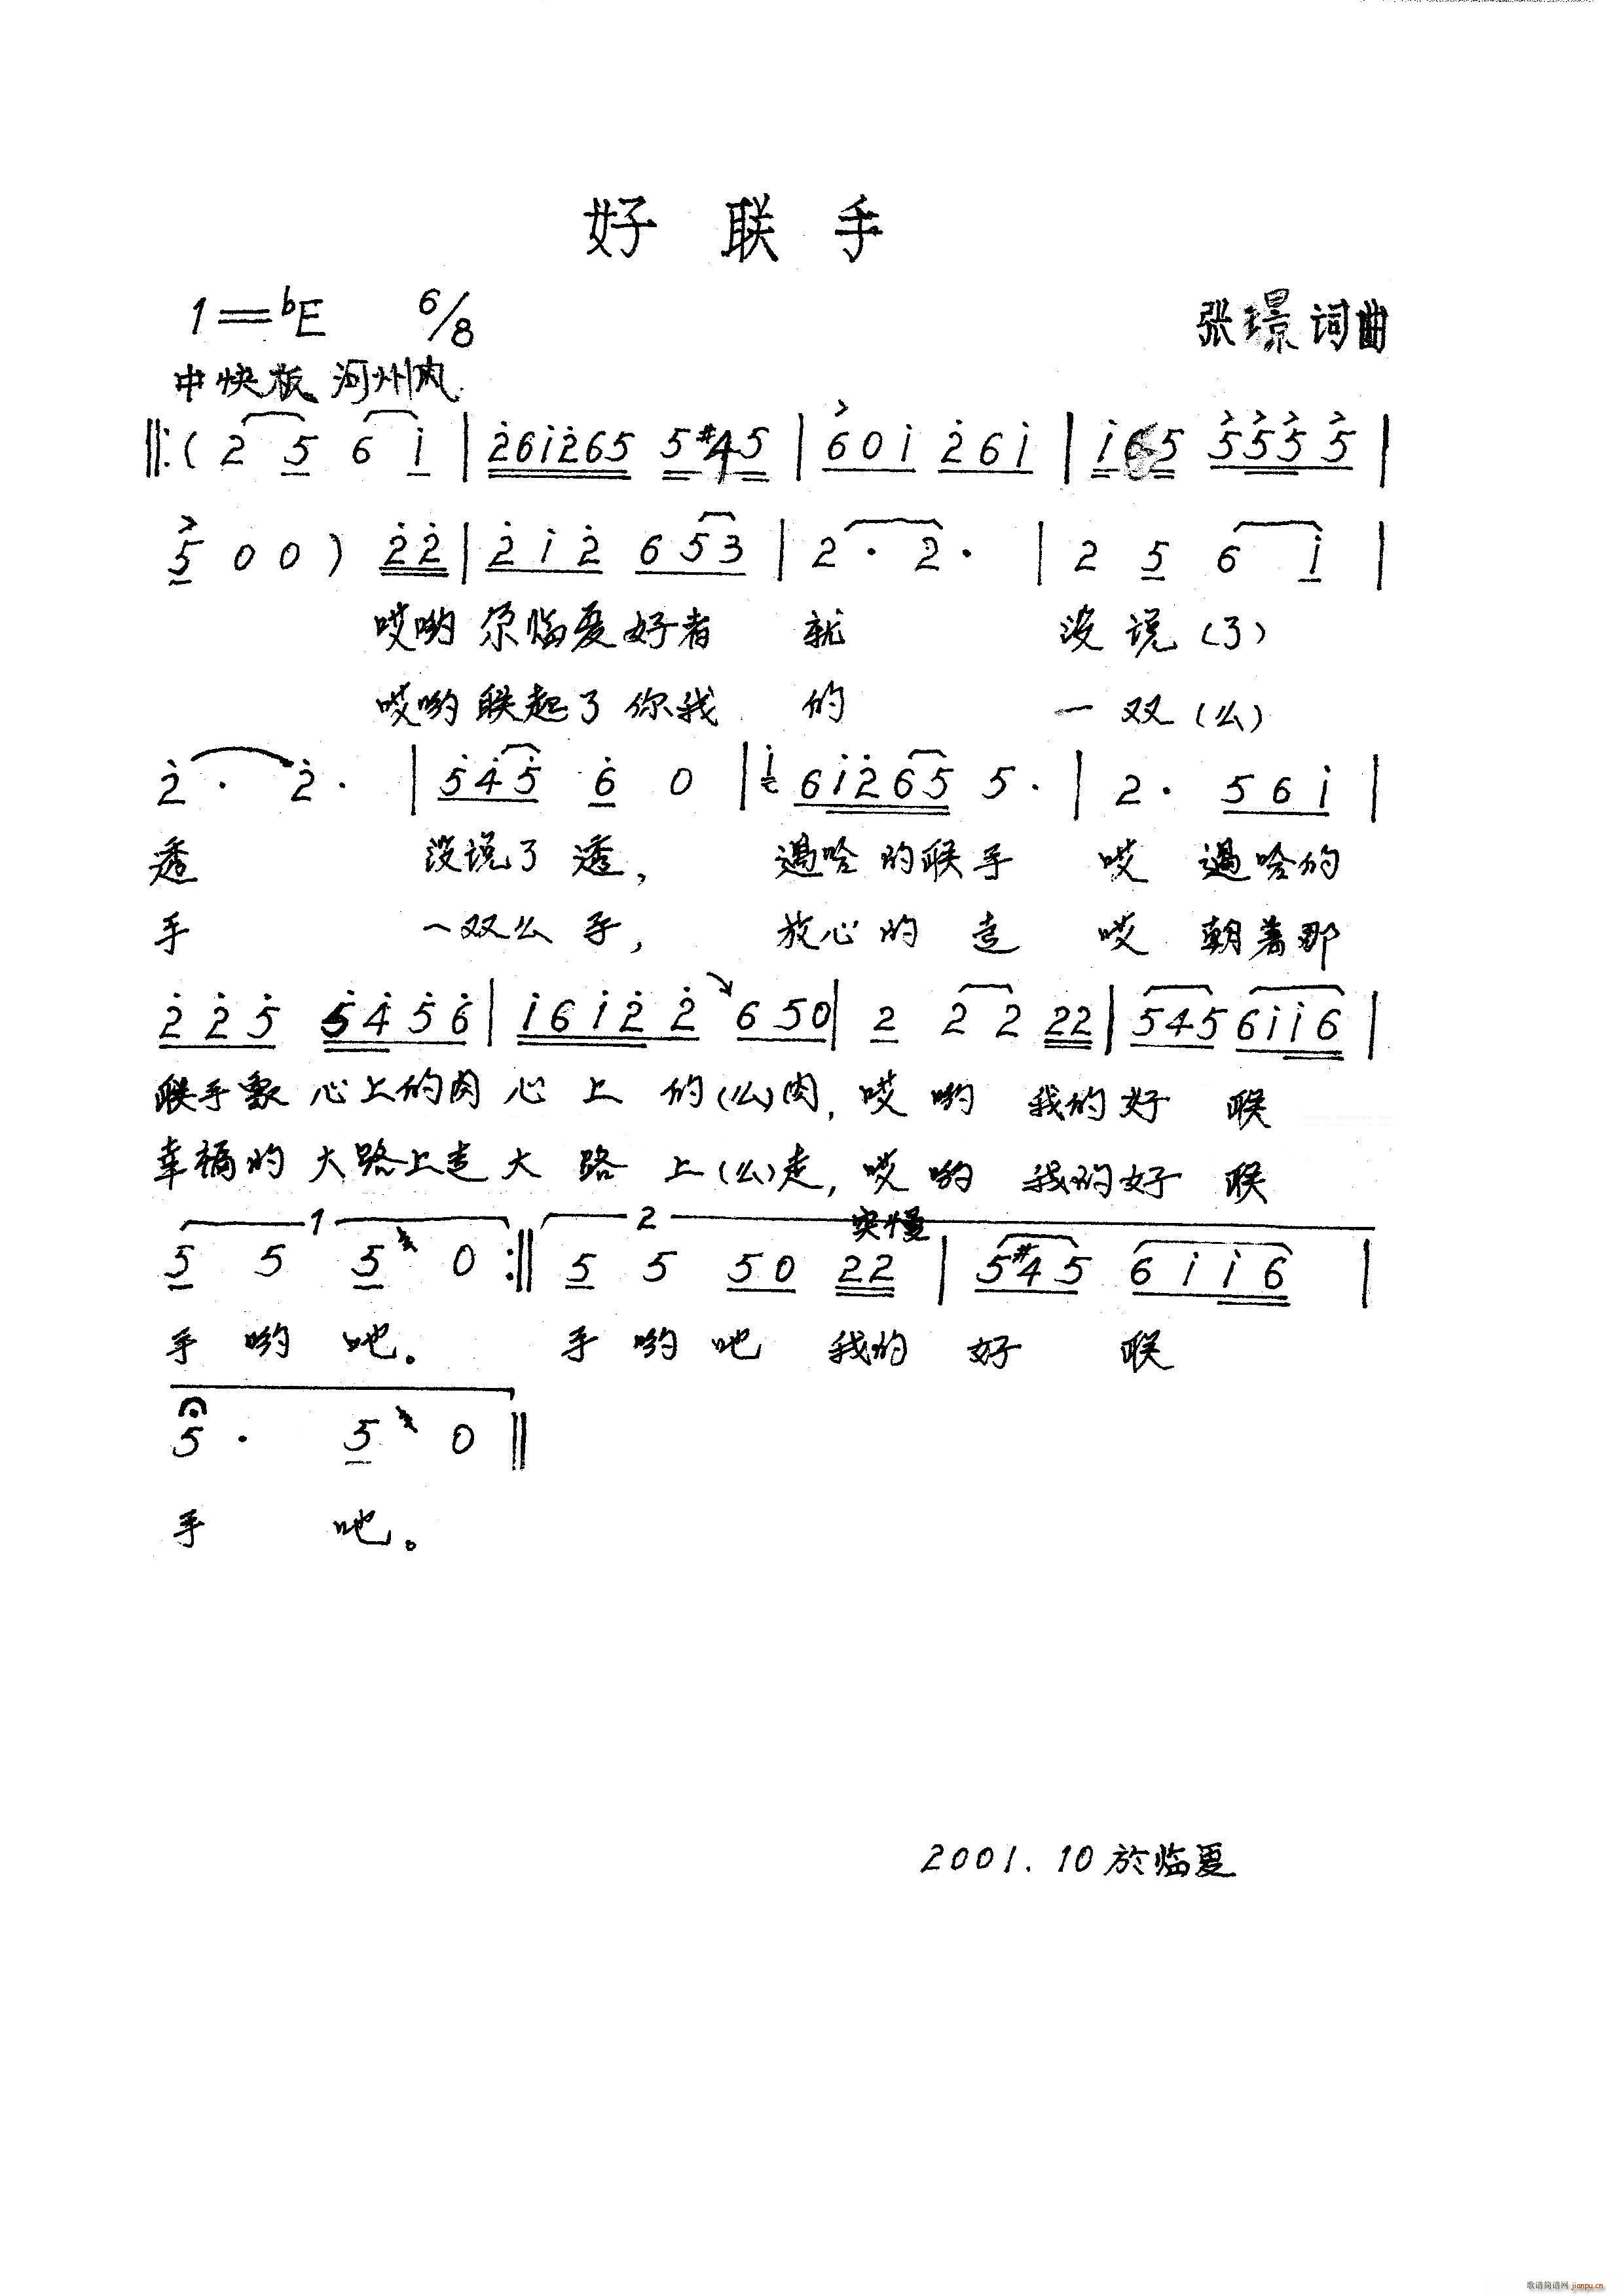 好联手
1=bE 6/8
张璟词曲
中快板 河州风
‖:( 2 5 6 i | 2 6 i 2 6 5 5 #4 5 | 6 0 i 2 6 i | i 6 5 5 5 5 5 |
5 0 0 ) 2 2 | 2 i 2 6 5 3 | 2 · 2 · | 2 5 6 i |
哎哟 尕临夏好者 就 没说(了)
哎哟 联起了你我 的 一双(么)
2 · 2 · | 5 4 5 6 0 | i 6 i 2 6 5 5 · | 2 · 5 6 i |
透 没说了透, 遇啥的联手 哎 遇啥的
手 一双么手, 放心的走 哎 朝着那
2 2 5 5 4 5 6 | i 6 i 2 2 6 5 0 | 2 2 2 2 2 | 5 4 5 6 i i 6 |
联手象 心上的肉 心上 的(么)肉, 哎哟 我的好 联
幸福的 大路上走 大路 上(么)走, 哎哟 我的好 联
1 2 突慢
5 5 5 0 :‖ 5 5 5 0 2 2 | 5 #4 5 6 i i 6 |
手哟吔。 手哟吔 我的好 联
5 · 5 0 ‖
手 吔。
2001.10於临夏
歌谱简谱网 jianpu.cn